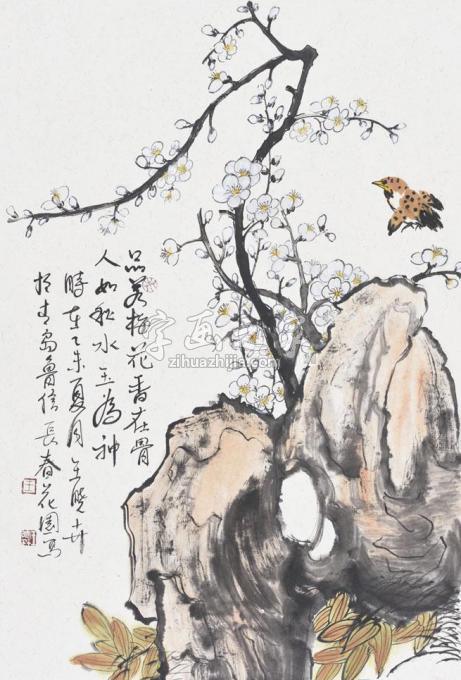 品若梅花香在骨
人如秋水玉为神
时在乙未夏月王晓卉
於青岛鲁信长春花园写
字画之家
zihuazhijia.com